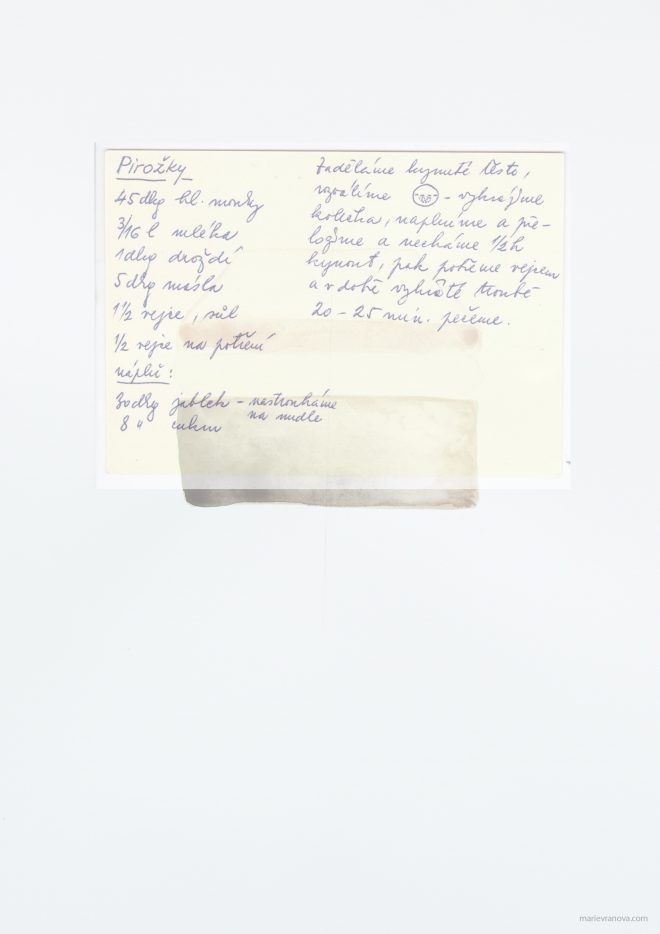 Pirožky
45 dkg hl. mouky
3/16 l mléka
1 dkg droždí
5 dkg másla
1 1/2 vejce, sůl
1/2 vejce na potření
náplň:
30 dkg jablek – nastrouháme
na nudle
8 " cukru
Zaděláme kynuté těsto,
rozválíme – vykrájíme
kolečka, naplníme a pře-
ložíme a necháme 1/2 h
kynout, pak potřeme vejcem
a v době vyhřáté troubě
20 – 25 min. pečeme.
marievranova.com